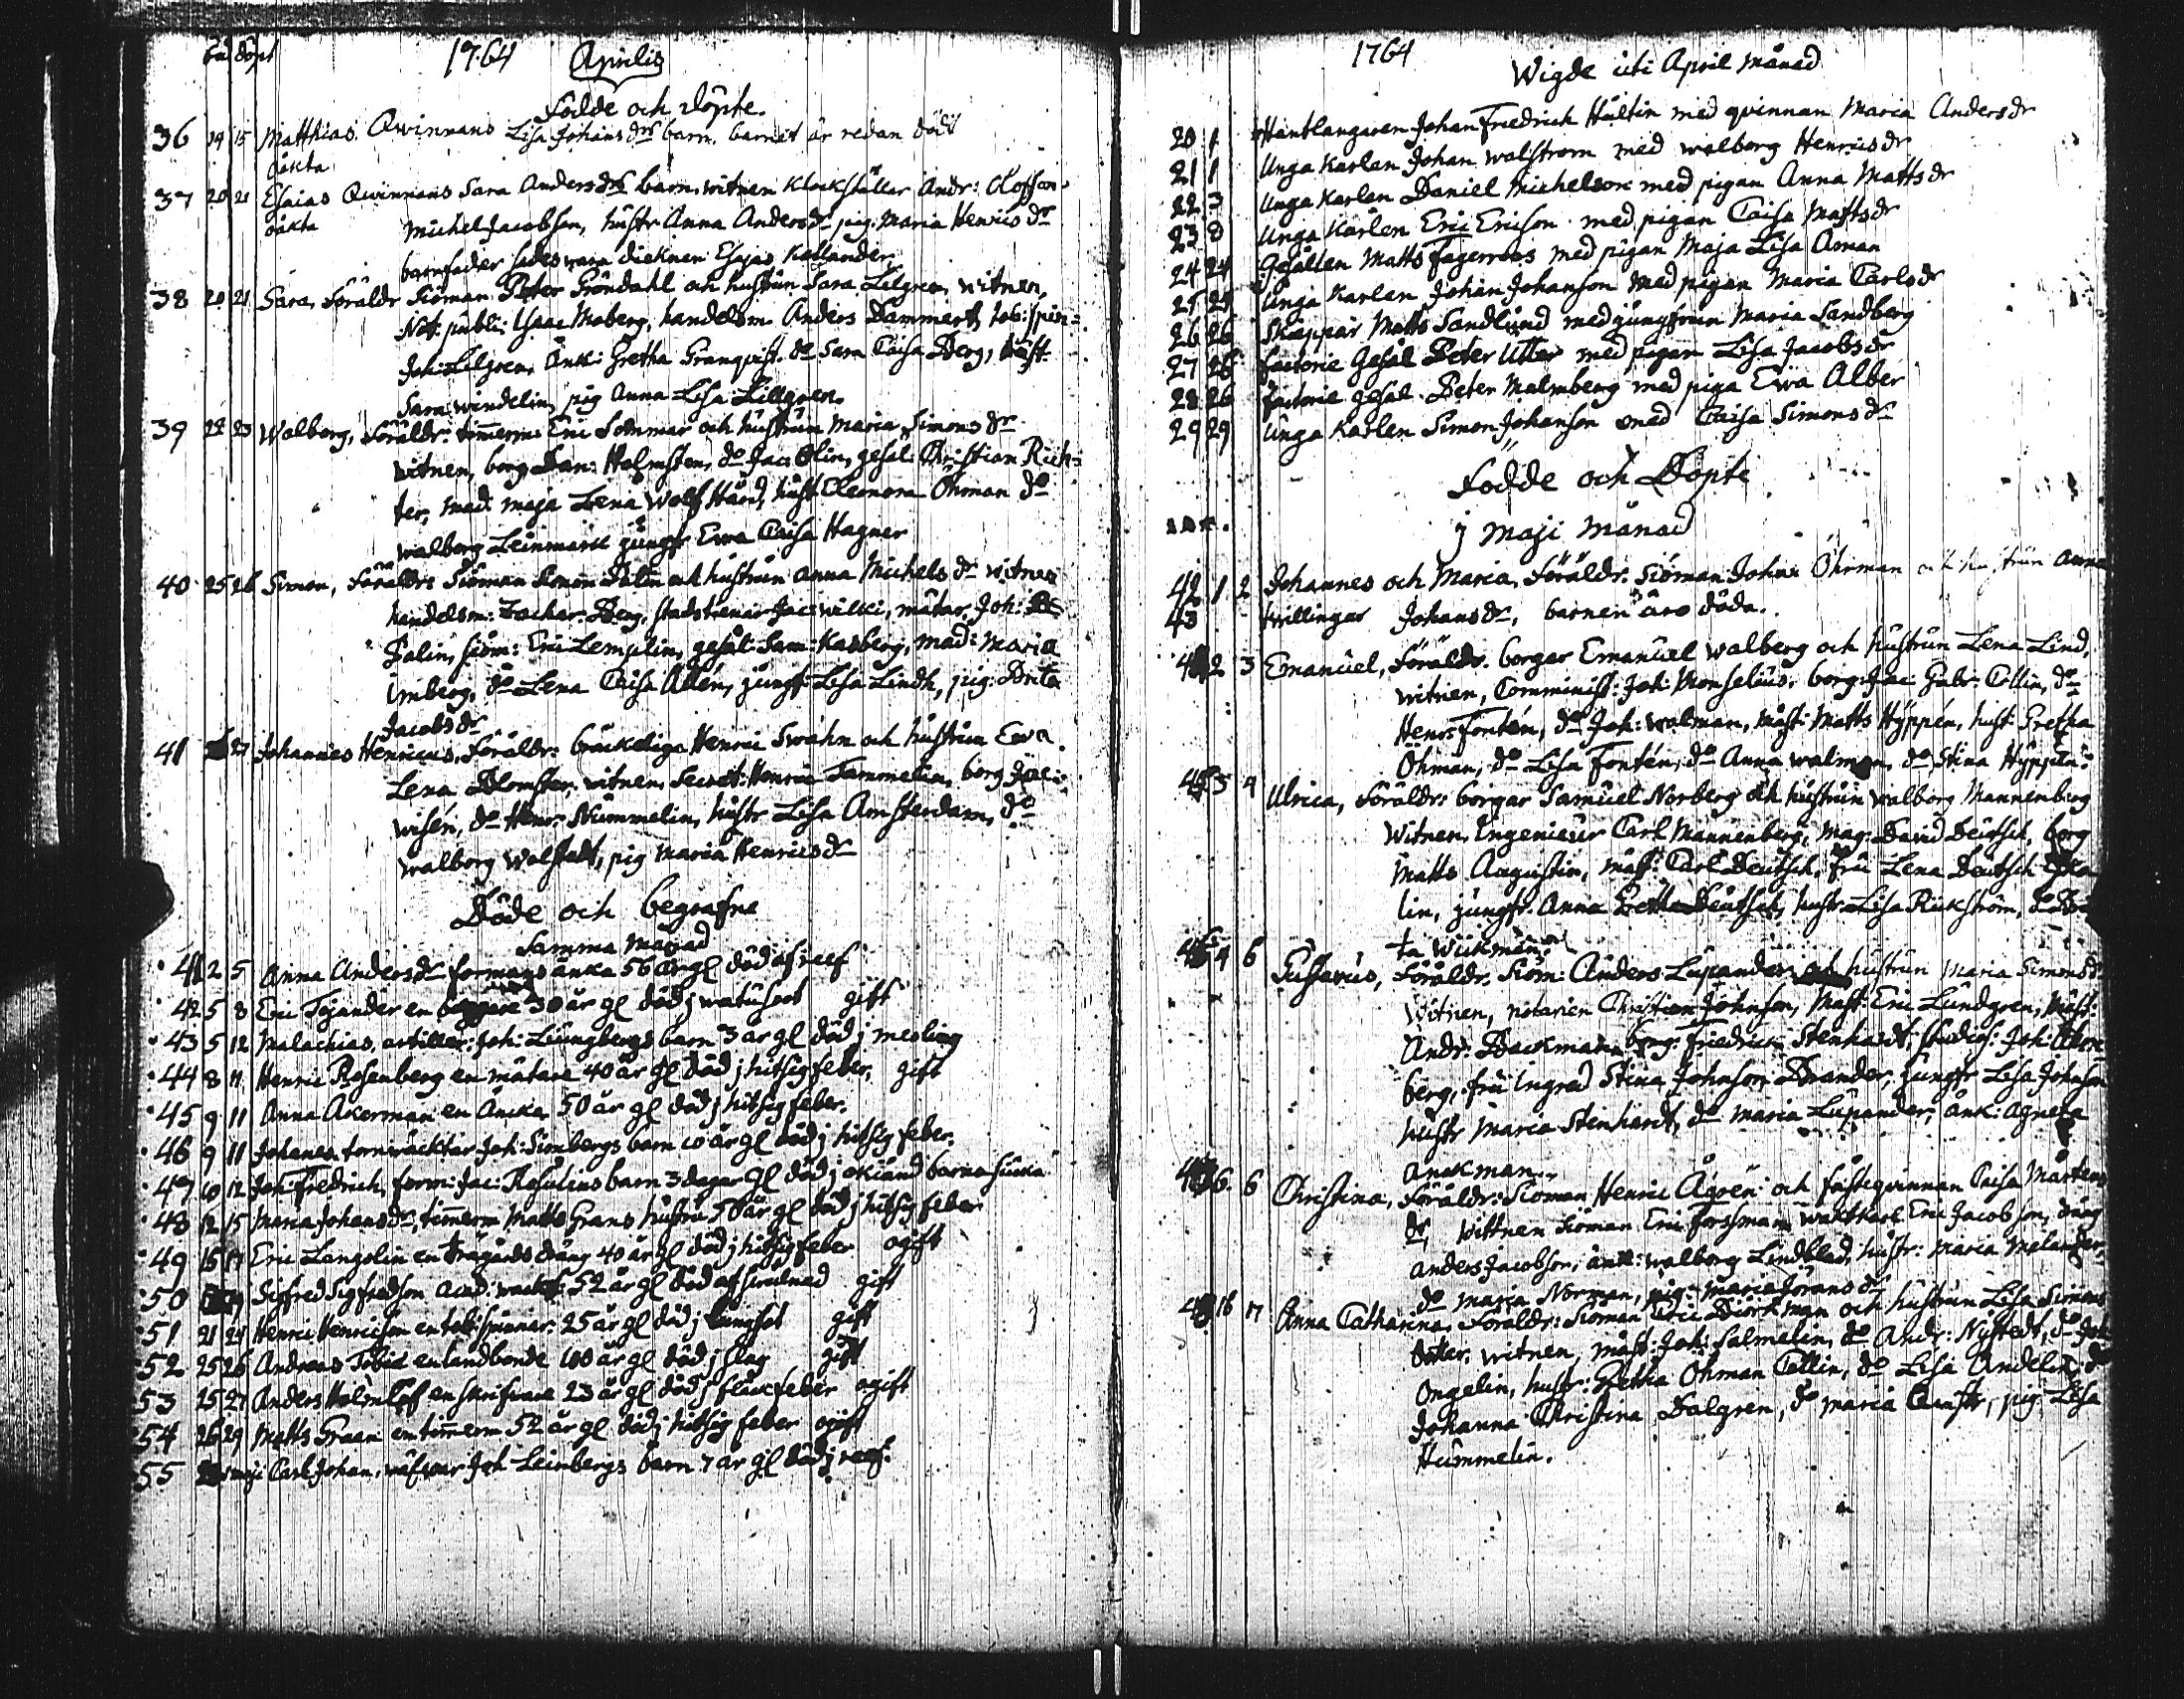 föd döpt
1764 Aprilis
Födde och döpte.
36 14 15 Matthias. Qwinnans Lisa Johans dr barn. barnet är redan dödt
oäkta
37 20 21 Esaias Qwinnans Sara Anders drs barn. witnen Klockställar Andr: Oloffson
oäkta Michel Jacobson, hustr Anna Anders dr pig. Maria Henrics dr
barnfader Esajas Kallander
38 20 21 Sara, Föräldr Siöman Peter Gröndahl och hustrun Sara Lilgren, witnen,
Not: publ: Isaac Moberg, handelsm. Anders Dammert, tob: spin-
Joh: Lilgren, Änk: Gretha Granqvist. do Sara Caisa Berg, hust
Sara windelin, pig Anna Lisa Lillgren.
39 22 23 Walborg, Föräldr: timerm: Eric Sommar och hustrun Maria Simons dr
witnen, borg Dan: Holmsten, do Jac: Olin, gesäl: Christian Rich-
ter, mad: Maja Lena Wolf Hård, hust: Eleonora Öhman do
walborg Leinmark jungfr Ewa Caisa Hagner
40 25 26 Simon, Föräldr: Siöman Simon Dalin och hustrun Anna Michels dr witnen
handelsm: Zachar. Berg, stadstienar Jac: wilki, mätar. Joh:
Dalin, siöm: Eric Lempelin, gesäl: Sam: Kasberg, mad: Maria
Imberg, do Lena Caisa Allén, jungf: Lisa Lindh, pig: Brita
Jacobs dr
41 27 Johannes Henricus, Föräldr: bräckeliga Henric Swahn och hustrun Ewa
Lena Blomster, witnen, Secret: Henric Tammelin, borg Jac:
wisén, do Henr: Nummelin, hustr Lisa Amsterdam, do
walborg Walstedt, pig Maria Henrics dr
Döde och begrafne
Samma Månad
41 2 5 Anna Anders dr formans änka 56 år gl död af reef
42 5 8 Eric Tojander en 30 år gl död j watusoot gift
43 5 12 Malachias, artiller: Joh: Liungbergs barn 3 år gl död j mesling
44 8 11 Henric Rosenberg en mätare 40 år gl död j hitsig feber, gift
45 9 11 Anna Akerman en Äncka 50 år gl död j hitsig feber.
46 9 11 Johanes, tornwäcktar Joh: Simbergs barn 10 år gl död j hitsig feber.
47 10 12 Joh: Fredrich, form: Jac: Rosulius barn 3 dagar gl död j okiänd barnasiuka
48 12 15 Maria Johans dr, timerm Matts Grans hustru 50 år gl död j hitsig feber
49 15 17 Eric Langolin en trägårds dräng 40 år gl död j hitsig feber ogift
50 19 Sigfred Sigfredson acad: wackt: 52 år gl död af swulnad gift
51 21 24 Henric Henricson en tob: spinnar 25 år gl död j lungsot gift
52 25 26 Andreas Tobid en landbonde 60 år gl död j slag gift
53 25 27 Anders Holmlöf en skrifvare 23 år gl död j fläckfeber ogift
54 26 29 Matts Graan en timerm 52 år gl död j hitsig feber ogift
55 maji Carl Johan, wäfwar Joh Leinbergs barn 7 år gl död j reef.
1764
Wigde uti April Månad
20 1 Hantlangaren Johan Friedrich Hultin med qvinnan Maria Anders dr
21 1 Unga Karlen Johan Walstrom med walborg Henrics dr
22 3 Unga Karlen Daniel Michelson med pigan Anna Matts dr
23 8 Unga Karlen Eric Ericson med pigan Caisa Matts dr
24 24 Gesällen Matts Fagerroos med pigan Maja Lisa Aman
25 24 Unga Karlen Johan Johanson med pigan Maria Carls dr
26 26 Skeppar Matts Sandlund med jungfrun Maria Sandberg
27 26 Factorie Gesäl Peter Utter med pigan Lisa Jacobs dr
28 26 factorie gesäl. Peter Malmberg med piga Ewa Alber
29 29 Unga Karlen Simon Johanson med Caisa Simons dr
Födde och Döpte
j Maji Månad
42 1 2 Johannes och Maria, Föräldr. Siöman Johan Öhrman och hustrun Anna
43 twillingar Johans dr, barnen äro döda.
2 3 Emanuel, Föräldr. borgar Emanuel walberg och hustrun Lena Lind,
witnen, Comminist: Joh: Monselius, borg: Jac Gabr: Collin, do
Henr: Fontén, do Joh: walman, mäst: Matts Hyppén, hust: Gretha
Öhman, do Lisa Fontén, do Anna walman, do Stina Hyppén.
3 4 Ulrica, Föräldr: borgar Samuel Norberg och hustrun walborg Mannenberg
Witnen, Ingenieur Carl Mannenberg, Mag: David Deutsch, borg
Matts Augustin, mäst: Carl Deutsch, fru Lena Deutsch
lin, jungfr. Anna Gretha Deutsch, hustr Lisa Rickström,
ta Wickman
4 6 Gustavus, Föräldr. Siöm: Anders Lupander och hustrun Maria Simons dr
Witnen, notarien Christian Johnson, Mäst: Eric Lundgren, Mäst:
Andr: Backman borg: Friedrich Stenhardt, studios: Joh:
berg, fru Ingred Stina Johnson Brander, jungfr Lisa Johnson
hustr Maria Stenhardt, do Maria Lupander, änk: Agneta
Anckman.
6 6 Christina, Föräldr: Siöman Henric Ågren och fästeqvinnan Caisa Mårtens
dr, wittnen Siöman Eric Forssman wacktkarl Eric Jacobson, dräng
anders Jacobson, änk: walborg Lindblad, hustr: Maria Melander
do Maria Norman, pig: Maria Jörans dr
16 17 Anna Catharina, Föräldr: Siöman Eric Biörkman och hustrun Lisa Simons
dotter. witnen, mäst: Joh: Salmelin, do Andr: Nystedt, do Joh
Ongelin, hustr: Gretha Öhman Collin, do Lisa Andelin, do
Johanna Christina Dalgren, do Maria, pig Lisa
Hummelin.